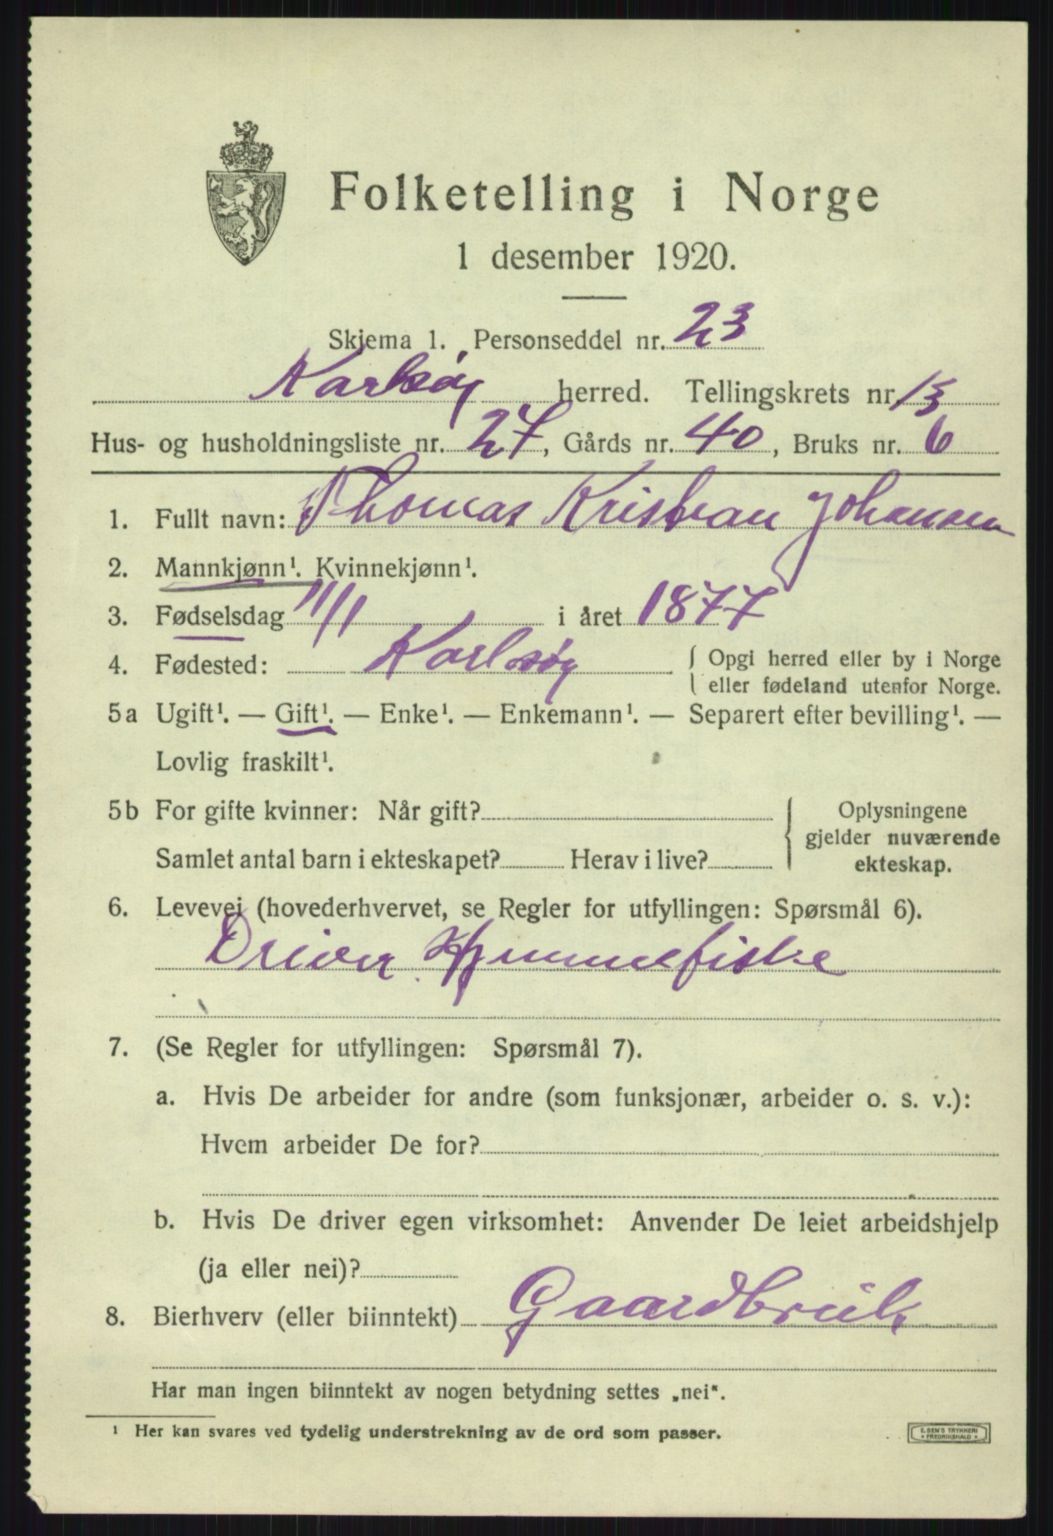 Folketelling i Norge
1 desember 1920.
Skjema 1. Personseddel nr. 23
Karlsøy herred. Tellingskrets nr. 13
Hus- og husholdningsliste nr. 27, Gårds nr. 40, Bruks nr. 6
1. Fullt navn: Thomas Kristian Johansen
2. Mannkjønn¹. Kvinnekjønn¹.
3. Fødselsdag 11/1 i året 1877
4. Fødested: Karlsøy { Opgi herred eller by i Norge
eller fødeland utenfor Norge.
5a Ugift¹. — Gift¹. — Enke¹. — Enkemann¹. — Separert efter bevilling¹. —
Lovlig fraskilt¹.
5b For gifte kvinner: Når gift? { Oplysningene
gjelder nuværende
Samlet antal barn i ekteskapet? Herav i live? ekteskap.
6. Levevei (hovederhvervet, se Regler for utfyllingen: Spørsmål 6).
Driver Hjemmefiske
7. (Se Regler for utfyllingen: Spørsmål 7).
a. Hvis De arbeider for andre (som funksjonær, arbeider o. s. v.):
Hvem arbeider De for?
b. Hvis De driver egen virksomhet: Anvender De leiet arbeidshjelp
(ja eller nei)?
8. Bierhverv (eller biinntekt) Gaardbruk
Har man ingen biinntekt av nogen betydning settes „nei“.
¹ Her kan svares ved tydelig understrekning av de ord som passer.
E. SEM'S TRYKKERI
FREDRIKSHALD